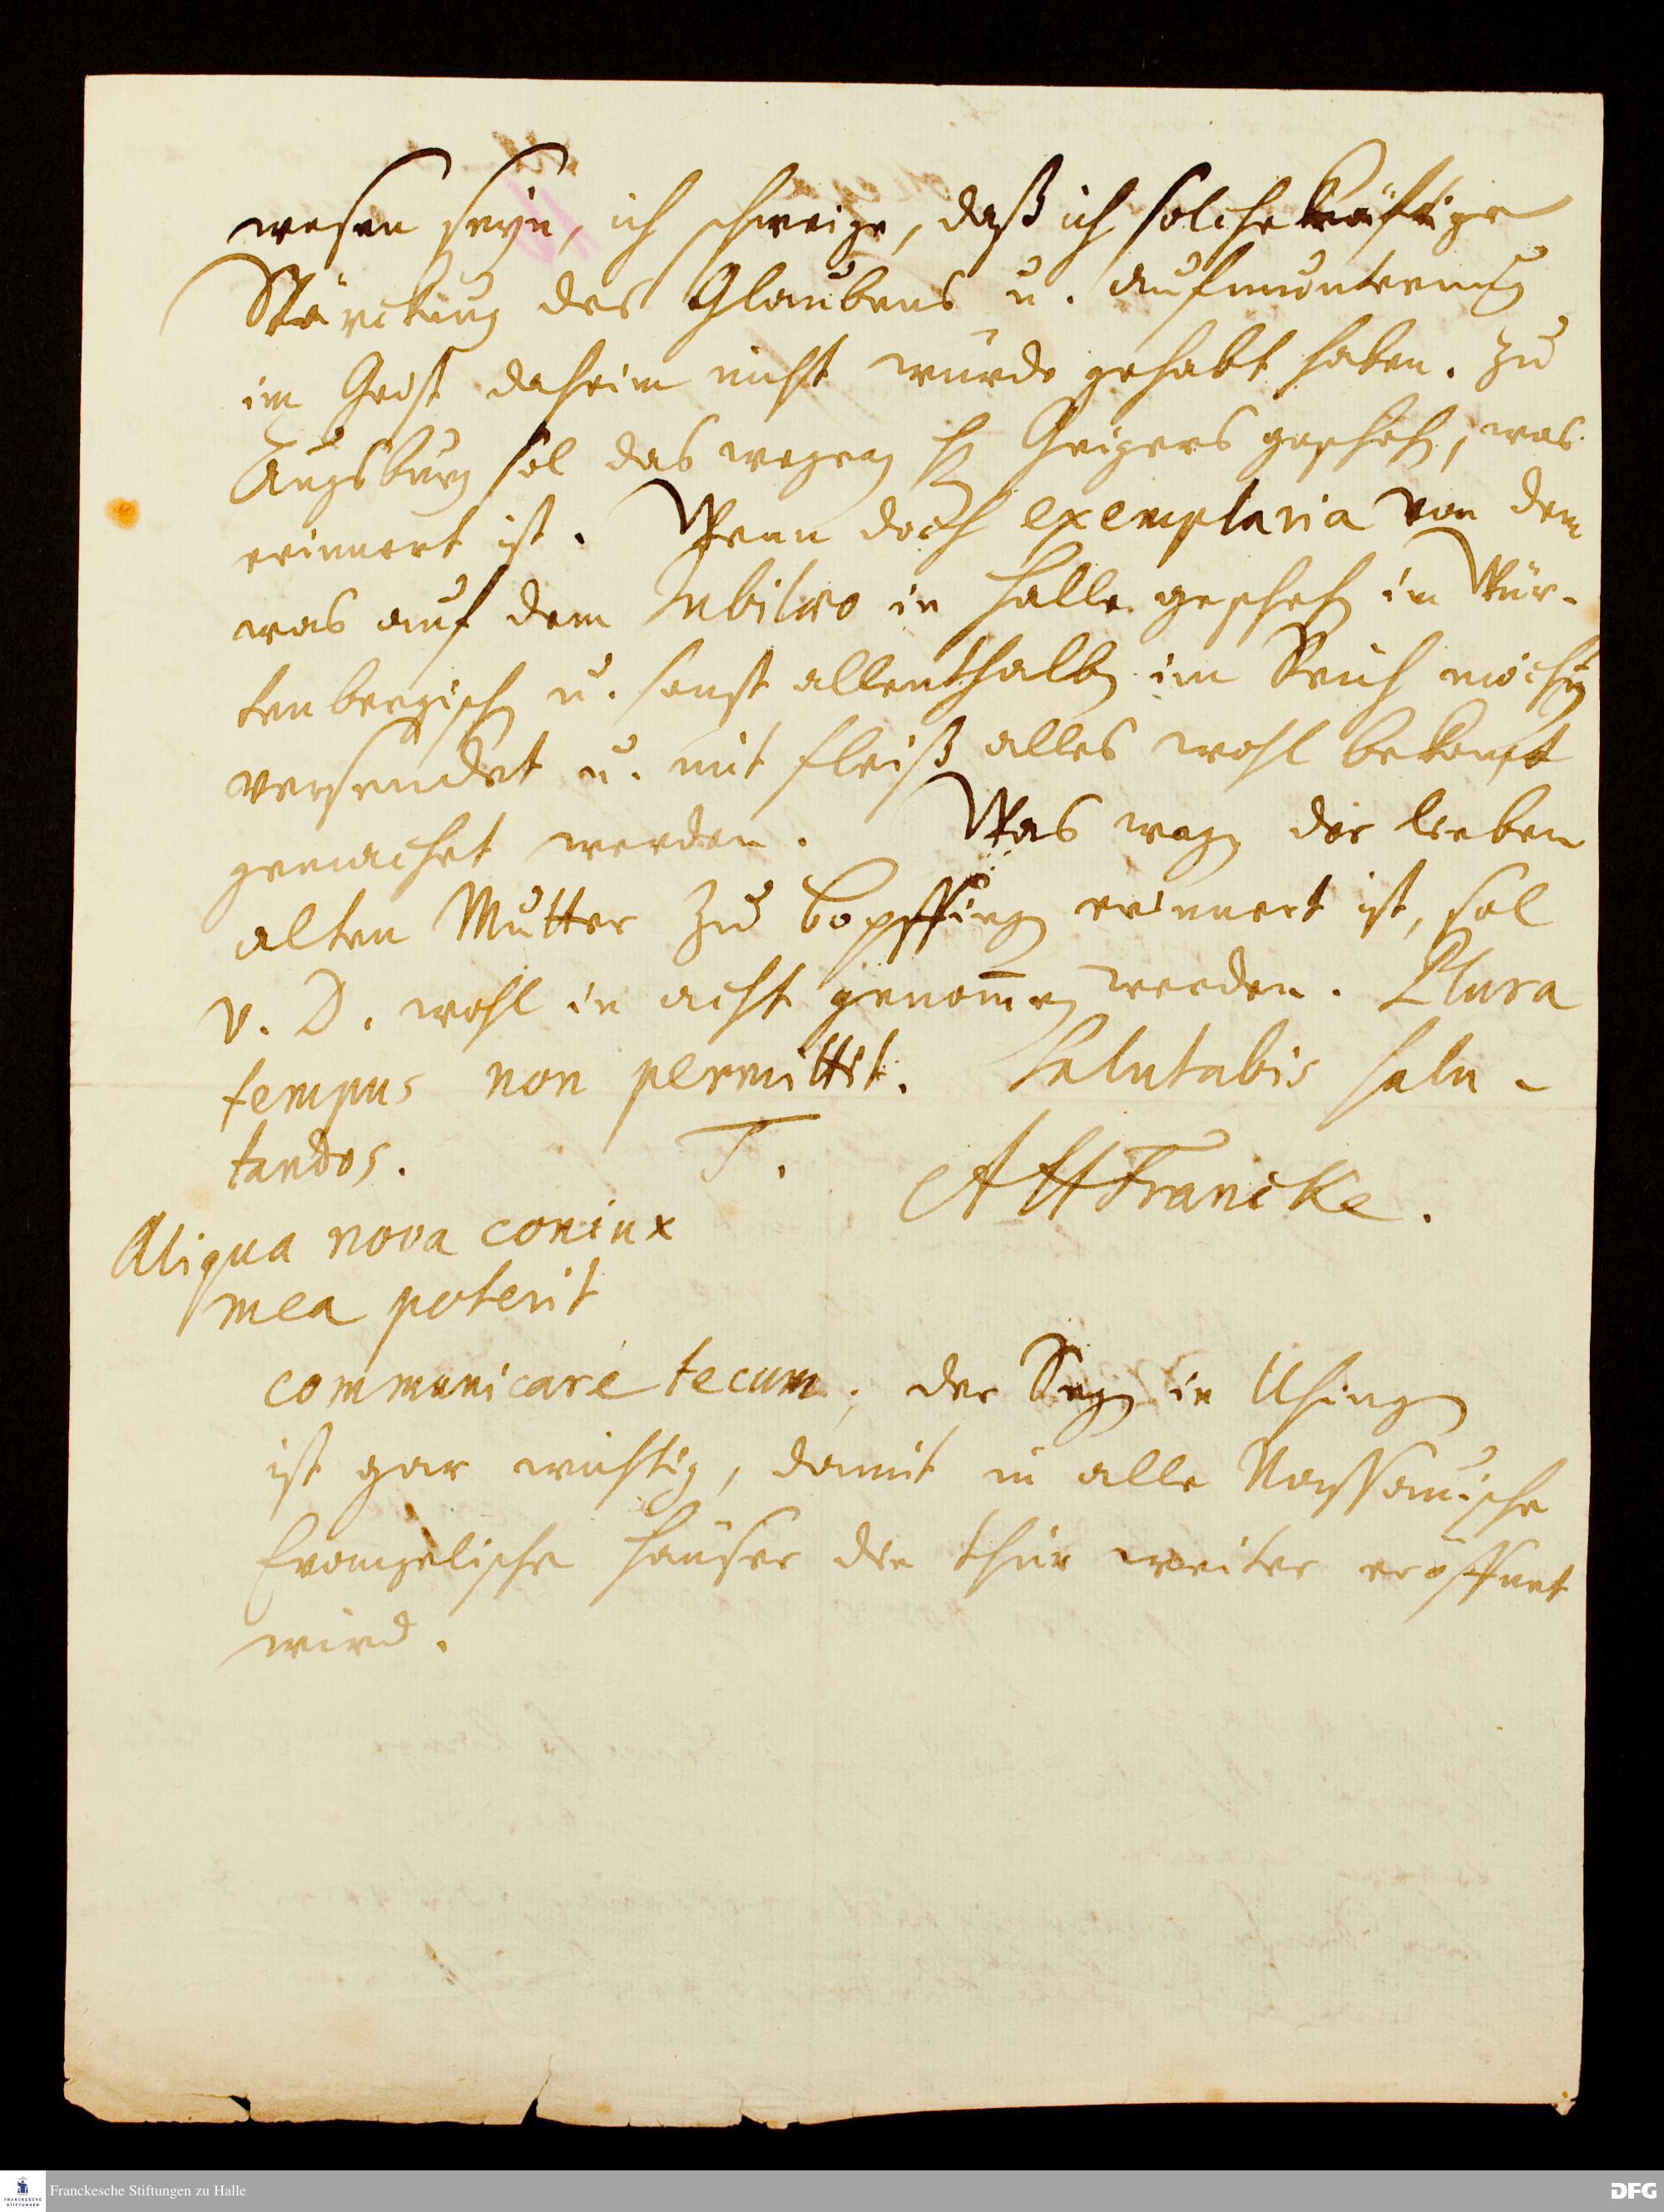 wesen seyn, ich schweige, daß ich solche kräftige
Stärckung des Glaubens u. aufmunterung
im Geist daheim nicht würde gehabt haben. Zu
Augsburg sol das wegen H Geigers geschehen, was
erinnert ist. Wenn doch exemplaria von dem
was auf dem Jubilaeo in Halle geschehen im Wür-
tenbergischen u. sonst allenthalben im Reich möchten
versendet u. mit fleiß alles wohl bekant
gemachet werden. Was wegen der lieben
alten Mutter zu Bopffingen erinnert ist, sol
v. D. wohl in acht genom̅en werden. Plura
tempus non permittit. Salutabis salu-
tandos. T. AHFrancke.
Aliqua nova coniux
mea poterit
communicare tecum; der Segen in Usingen
ist gar wichtig, damit in alle Nassauische
Evangelische Häuser die thür weiter eröffnet
wird.
Franckesche Stiftungen zu Halle
FRANCKESCHE STIFTUNGEN
DFG